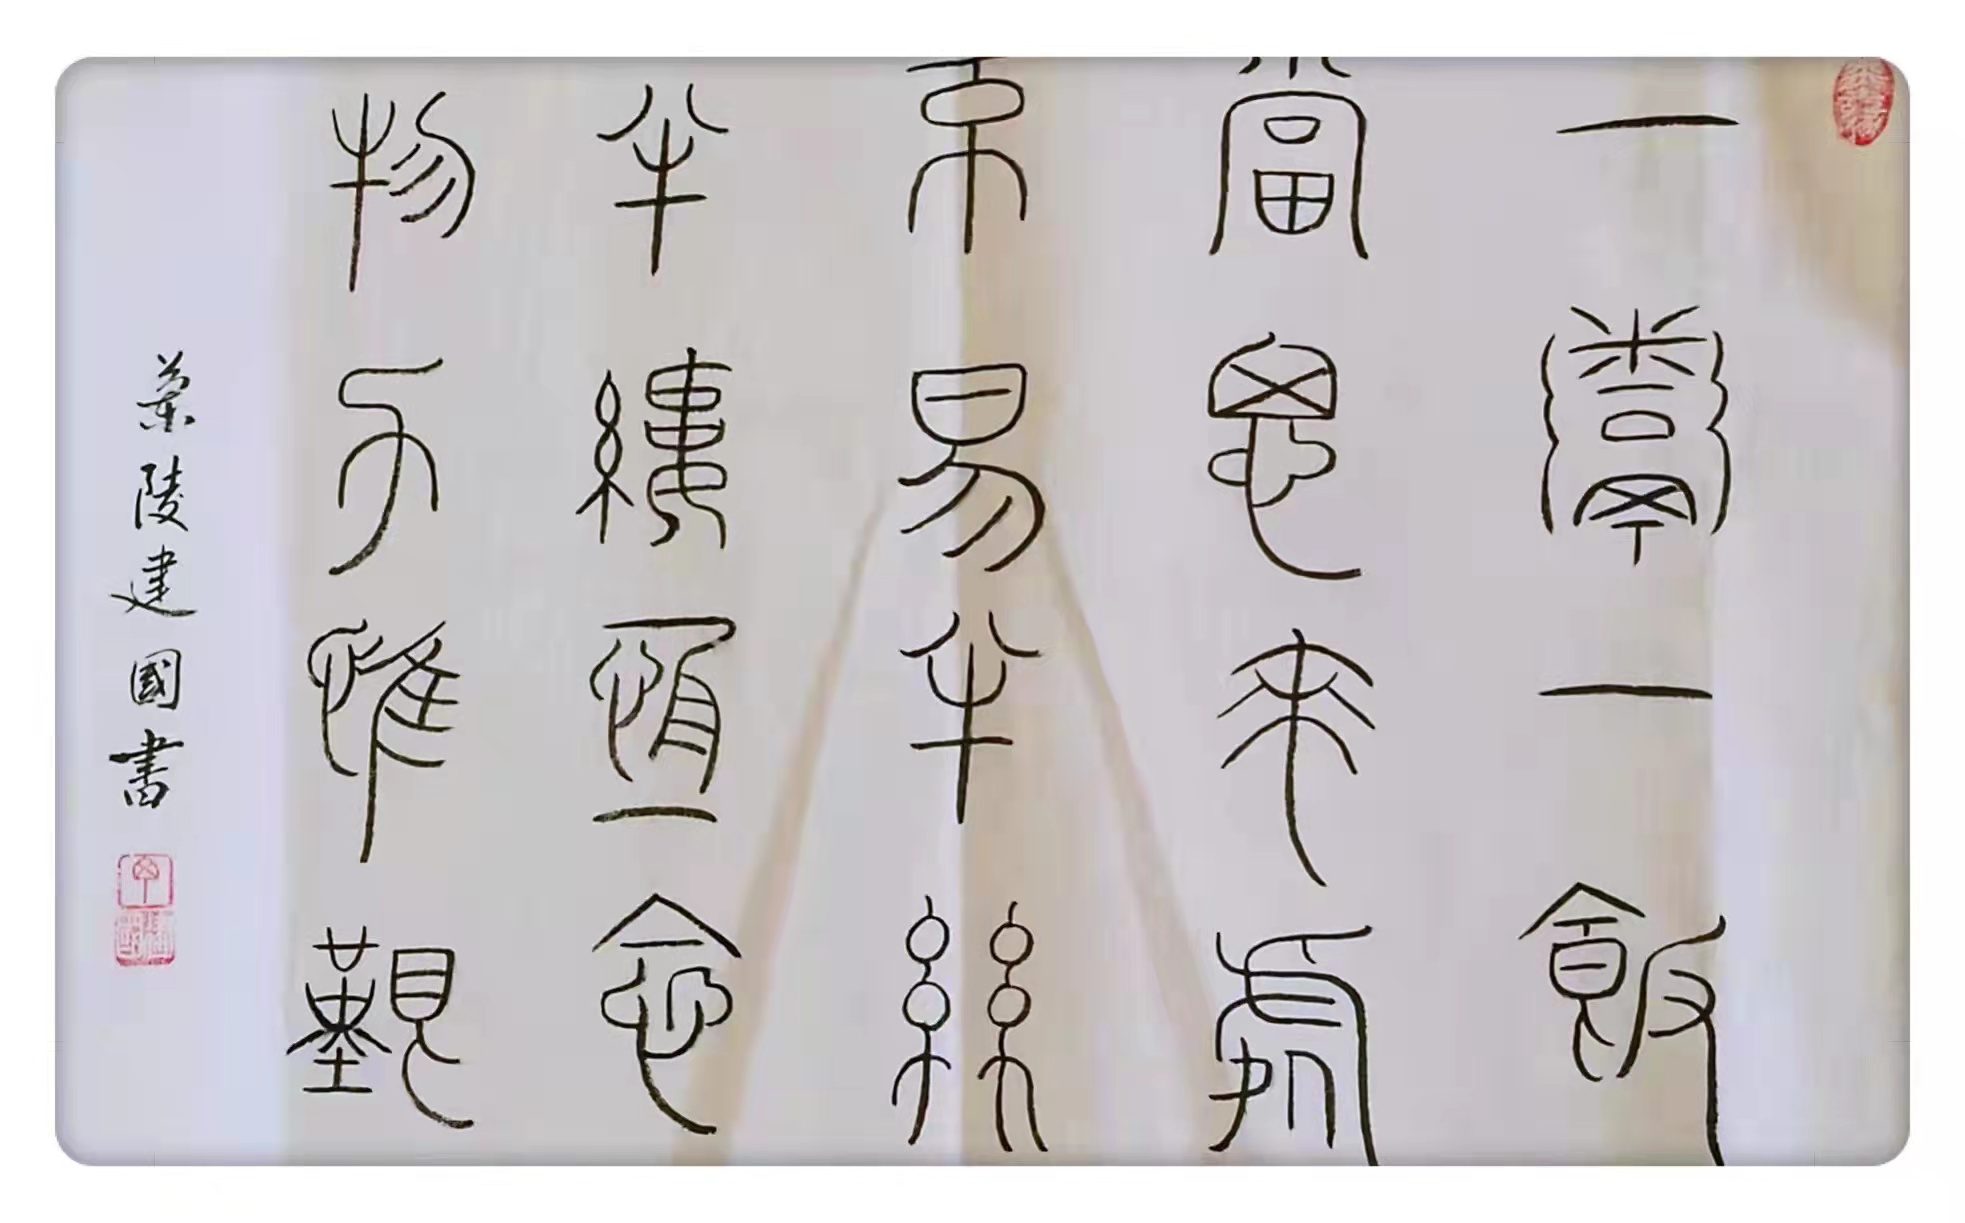 一粥一飯
當思來處
不易半絲
半縷恆念
物力惟艱
蘭陵建國書